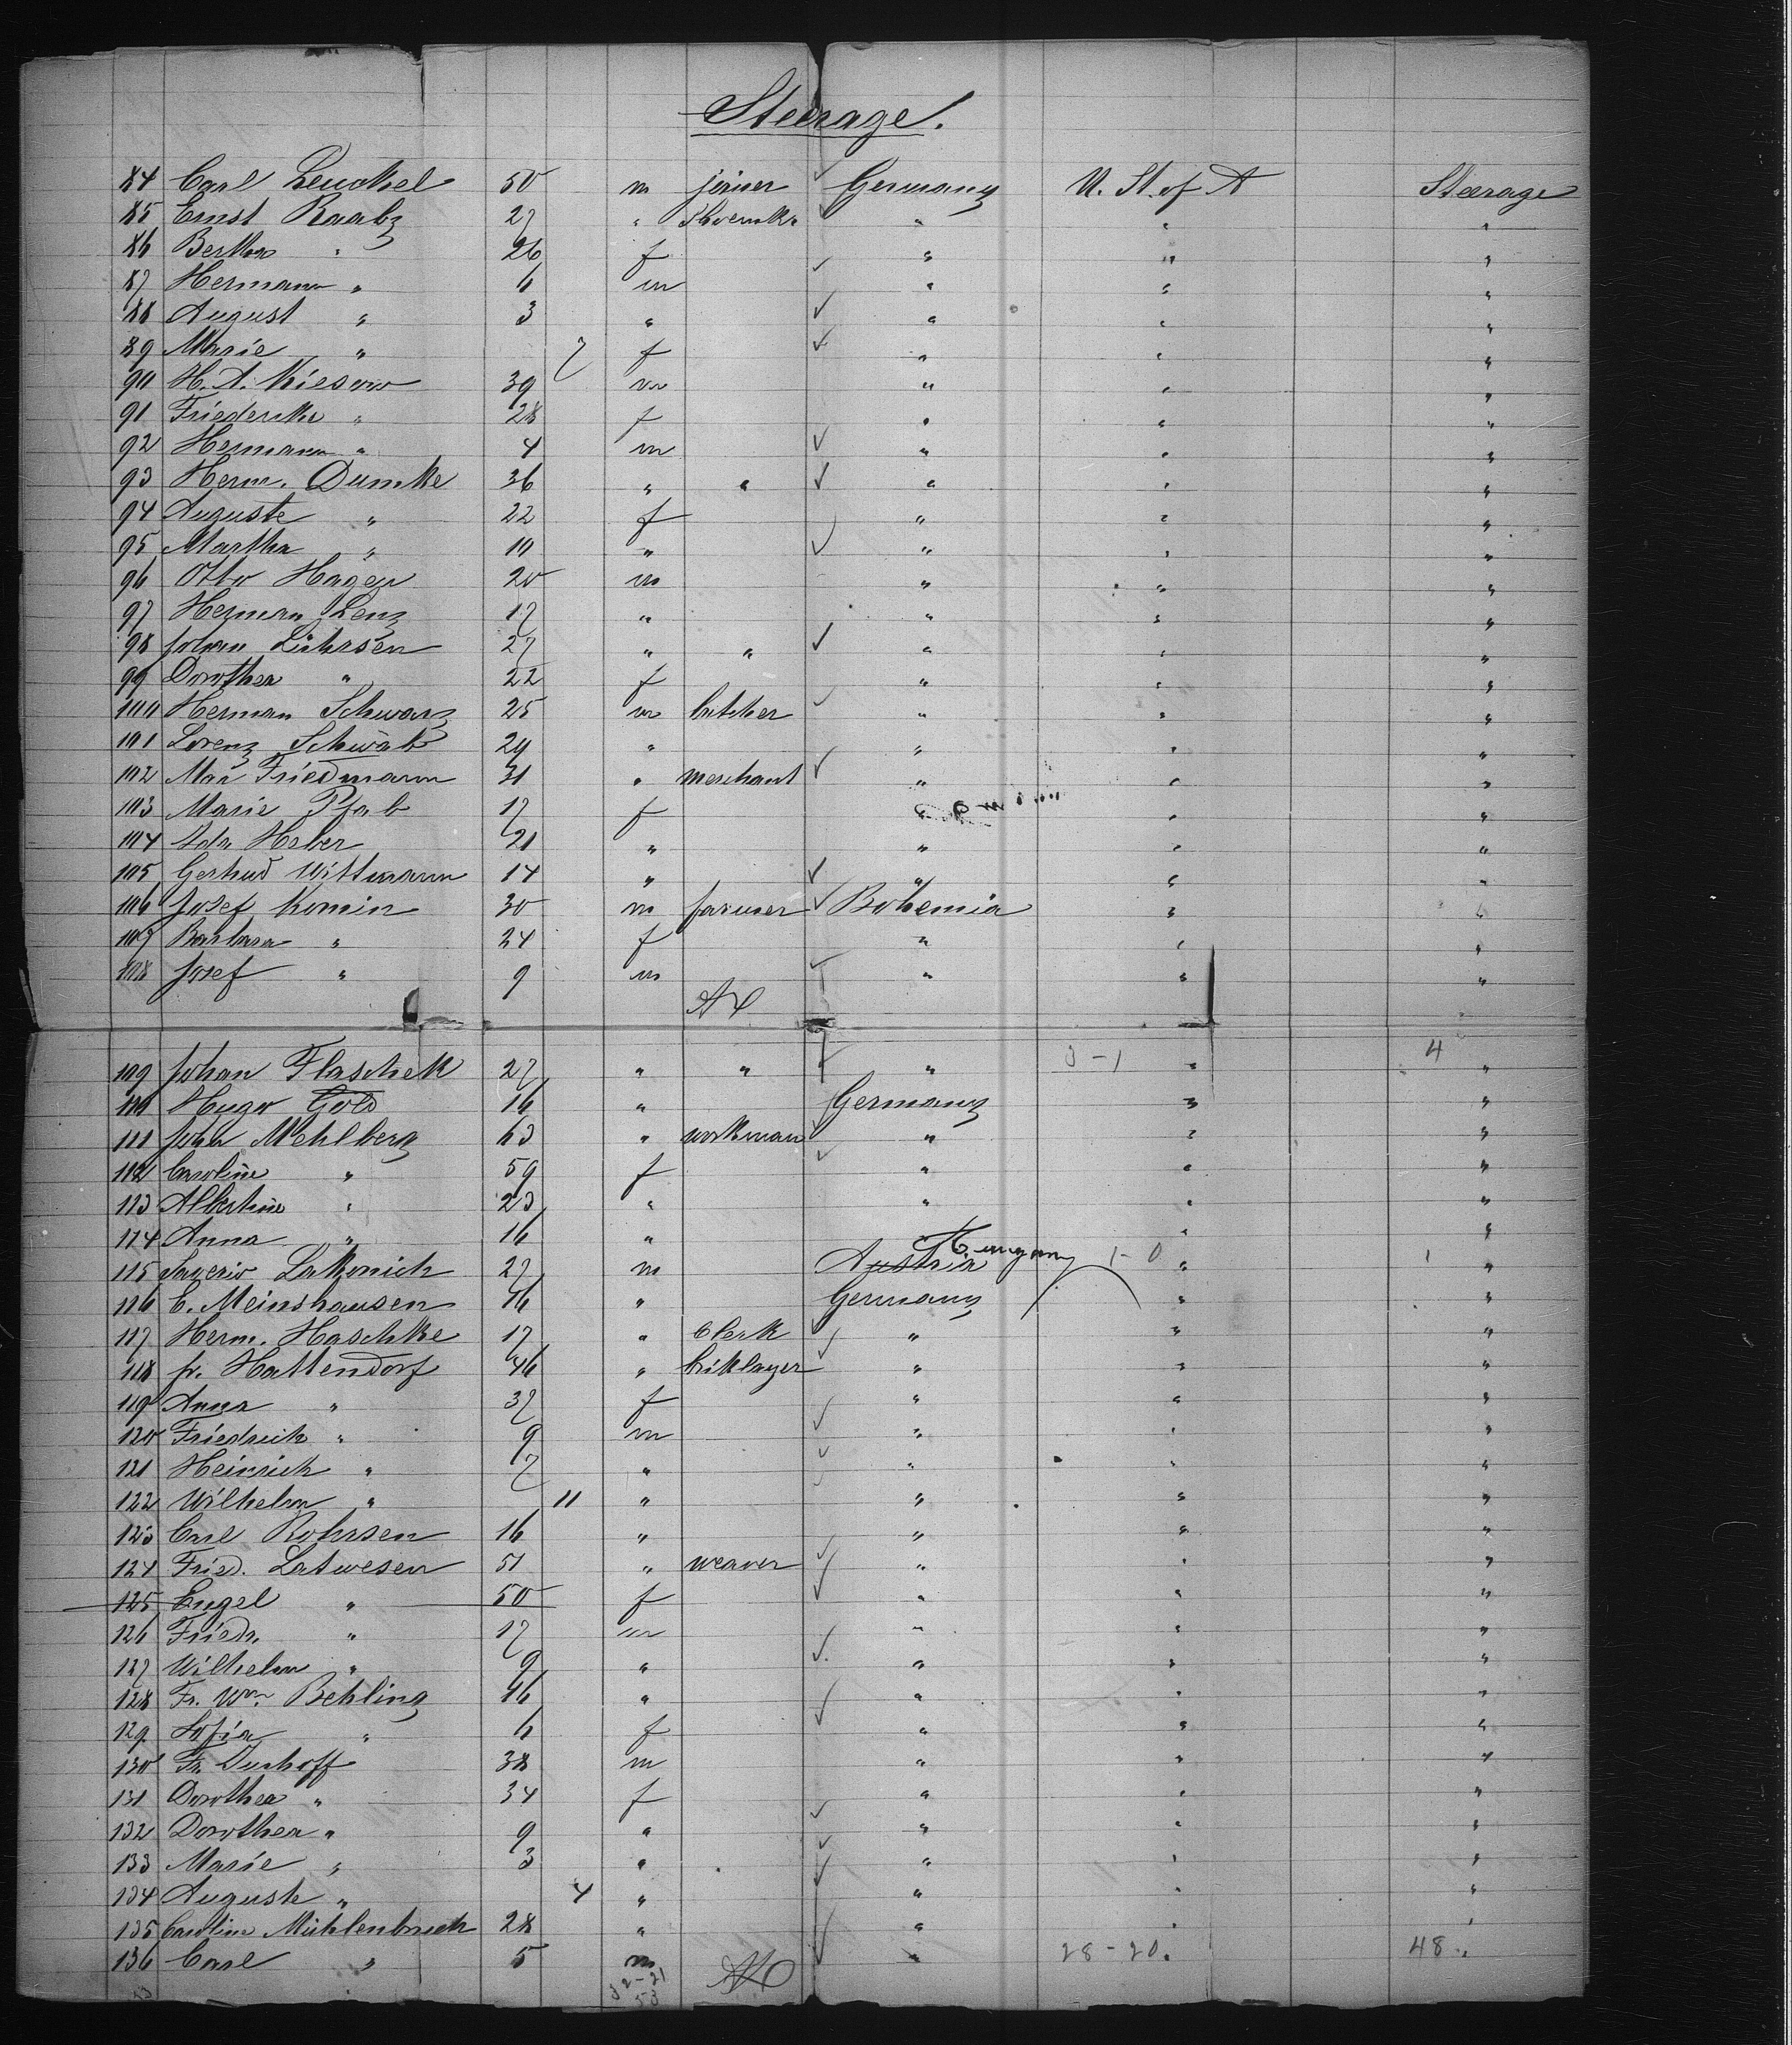 Steerage.
84 Carl Leuckel 50 m joiner Germany U. St. of A Steerage
85 Ernst Raabz 27 " Shoemkr " " "
86 Bertha " 26 f " " "
87 Hermann " 6 m " " "
88 August " 3 " " " "
89 Marie " 7 f " " "
90 H. A. Kiesow 39 m " " "
91 Friederike " 28 f " " "
92 Hermann " 4 m " " "
93 Herm. Dumke 36 " " " " "
94 Auguste " 22 f " " "
95 Martha " 10 " " " "
96 Otto Hagen 20 m " " "
97 Herman Lenz 17 " " " "
98 Johan Lührsen 27 " " " " "
99 Dorothea " 22 f " " "
100 Herman Schwarz 25 m butcher " " "
101 Lorenz Schwab 29 " " " "
102 Max Friedmann 31 " merchant " " "
103 Marie Pfab 17 f " " "
104 Ada Heber 21 " " " "
105 Gertrud Wittmann 14 " " " "
106 Josef Komin 30 m farmer Bohemia " "
107 Barbara " 24 f " " "
108 Josef " 9 m " " "
109 Johan Flaschek 27 " " " 3-1 " 4 "
110 Hugo Gold 16 " Germany " "
111 John Mehlberg 63 " workman " " "
112 Caroline " 59 f " " "
113 Albertine " 23 " " " "
114 Anna " 16 " " "
Hungary
115 Saverio Lakonich 27 m Austria 1-0 " 1 "
116 C. Meinshausen 46 " Germany " "
117 Herm. Haschke 17 " Clerk " " "
118 fr. Hattendorf 46 " briklayer " " "
119 Anna " 37 f " " "
120 Friedrich " 9 m " " "
121 Heinrich " 7 " " " "
122 Wilhelm " 11 " " " "
123 Carl Rohrsen 16 " " " "
124 Fried. Latwesen 51 " weaver " " "
125 Engel " 50 f " " "
126 Friedr. " 17 m " " "
127 Wilhelm " 9 " " " "
128 Fr. Wm. Behling 46 " " " "
129 Sofia " 6 f " " "
130 Fr. Dushoff 38 m " " "
131 Dorothea " 34 f " " "
132 Dorothea " 9 " " " "
133 Marie " 3 " " " "
134 Auguste " 4 " " " "
135 Caroline Mühlenbruch 28 " " " "
136 Carl " 5 m " 28-20 " 48 "
32-21
53